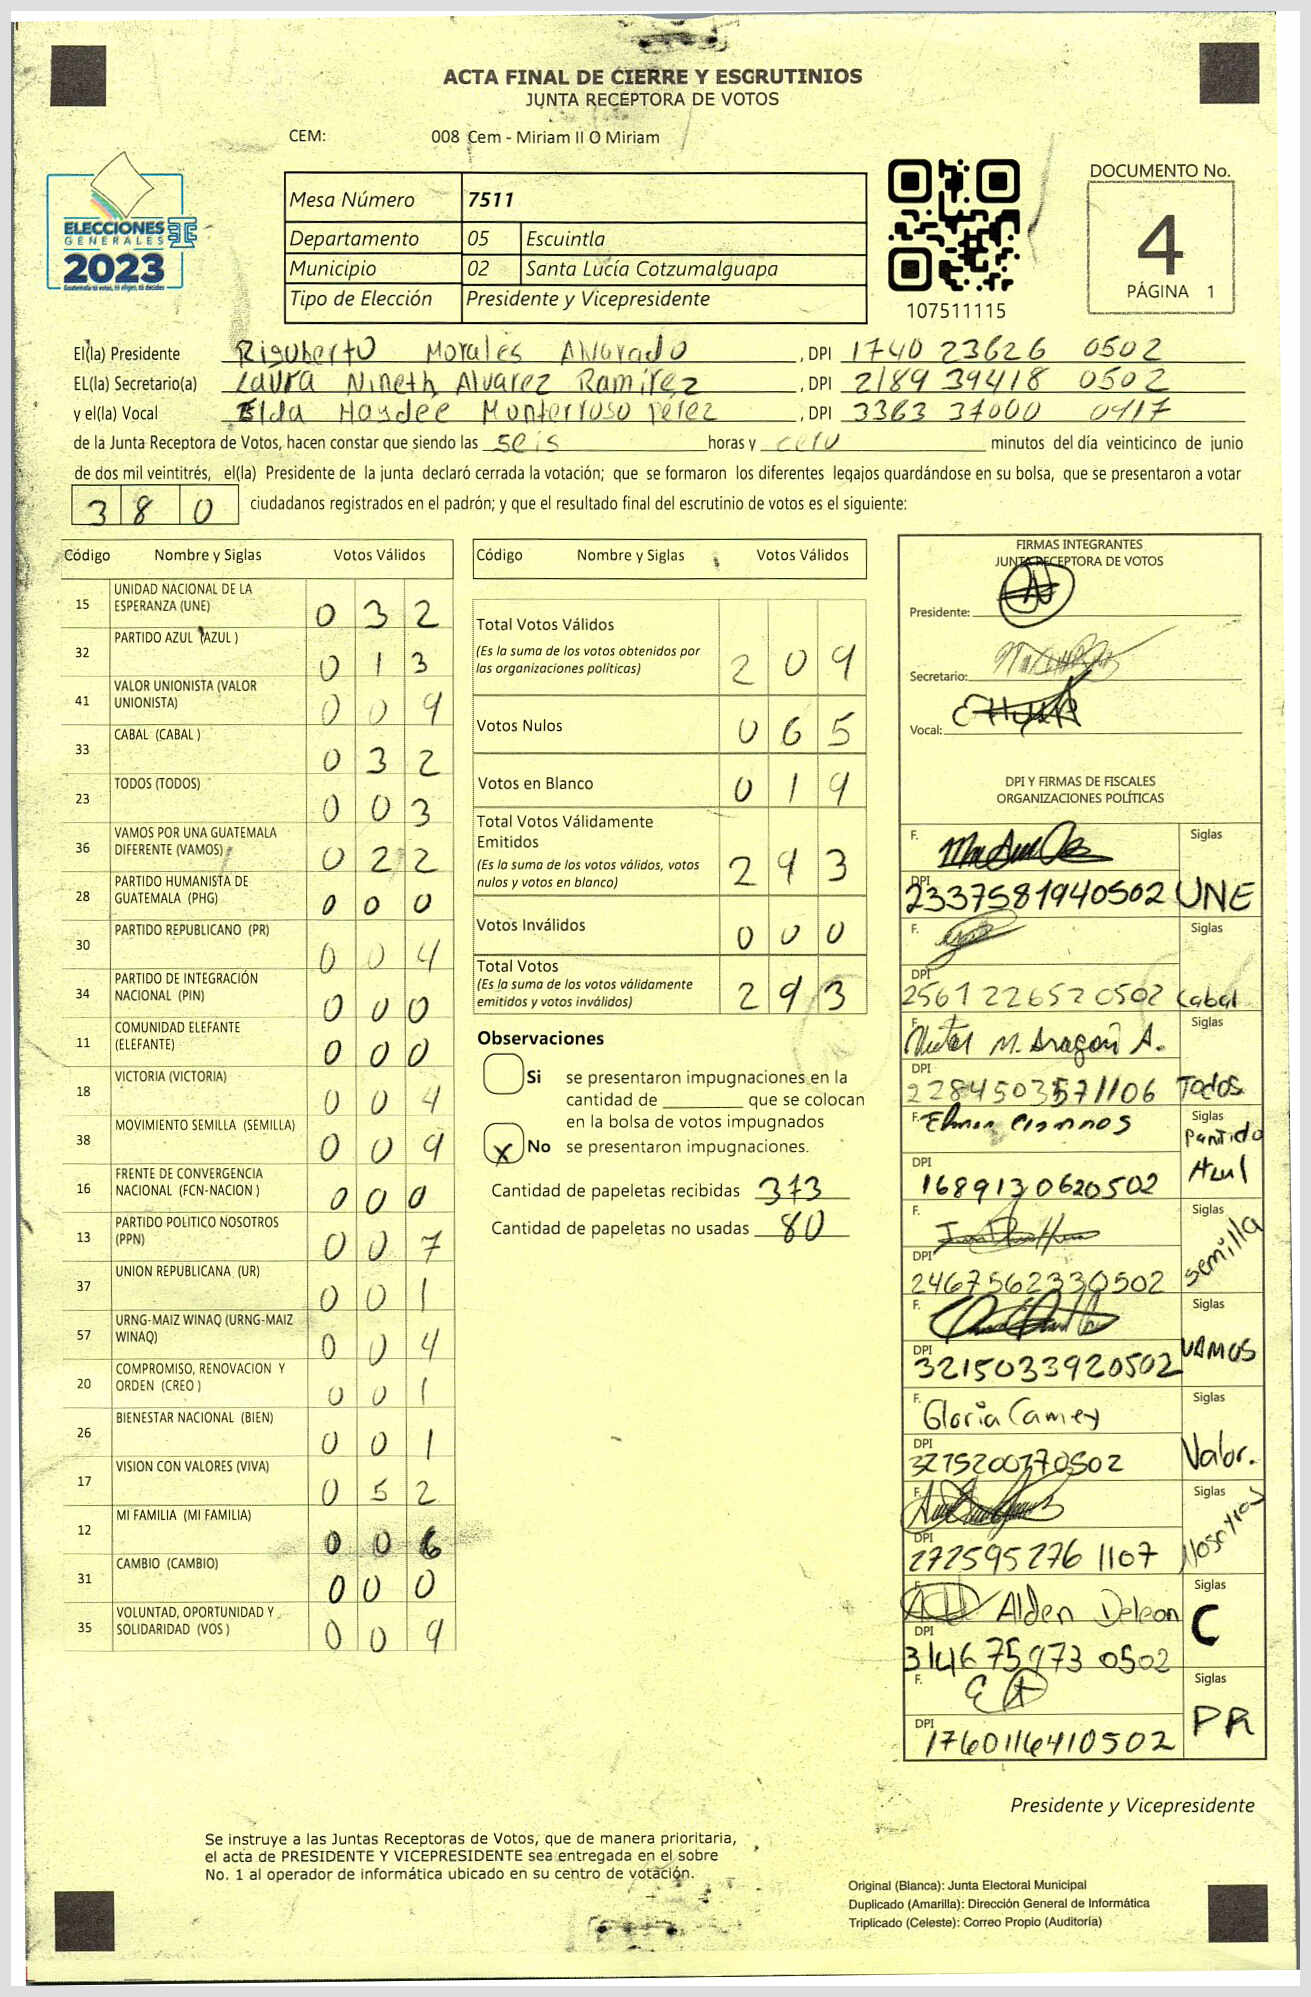 ACTA FINAL DE CIERRE Y ESCRUTINIOS
JUNTA RECEPTORA DE VOTOS
CEM: 008 Cem - Miriam II O Miriam
ELECCIONES
GENERALES
2023
Guatemala tú votas, tú eliges, tú decides
Mesa Número 7511
Departamento 05 Escuintla
Municipio 02 Santa Lucía Cotzumalguapa
Tipo de Elección Presidente y Vicepresidente
107511115
DOCUMENTO No.
4
PÁGINA 1
El(la) Presidente Rigoberto Morales Alvarado , DPI 1740 23626 0502
EL(la) Secretario(a) Laura Nineth Alvarez Ramírez , DPI 2189 39418 0502
y el(la) Vocal Elda Haydeé Monterroso Pérez , DPI 3363 37000 0417
de la Junta Receptora de Votos, hacen constar que siendo las seis horas y cero minutos del día veinticinco de junio
de dos mil veintitrés, el(la) Presidente de la junta declaró cerrada la votación; que se formaron los diferentes legajos guardándose en su bolsa, que se presentaron a votar
380 ciudadanos registrados en el padrón; y que el resultado final del escrutinio de votos es el siguiente:
Código Nombre y Siglas Votos Válidos
15 UNIDAD NACIONAL DE LA ESPERANZA (UNE) 032
32 PARTIDO AZUL (AZUL ) 013
41 VALOR UNIONISTA (VALOR UNIONISTA) 009
33 CABAL (CABAL ) 032
23 TODOS (TODOS) 003
36 VAMOS POR UNA GUATEMALA DIFERENTE (VAMOS) 022
28 PARTIDO HUMANISTA DE GUATEMALA (PHG) 000
30 PARTIDO REPUBLICANO (PR) 004
34 PARTIDO DE INTEGRACIÓN NACIONAL (PIN) 000
11 COMUNIDAD ELEFANTE (ELEFANTE) 000
18 VICTORIA (VICTORIA) 004
38 MOVIMIENTO SEMILLA (SEMILLA) 009
16 FRENTE DE CONVERGENCIA NACIONAL (FCN-NACION ) 000
13 PARTIDO POLITICO NOSOTROS (PPN) 007
37 UNION REPUBLICANA (UR) 001
57 URNG-MAIZ WINAQ (URNG-MAIZ WINAQ) 004
20 COMPROMISO, RENOVACION Y ORDEN (CREO ) 001
26 BIENESTAR NACIONAL (BIEN) 001
17 VISION CON VALORES (VIVA) 052
12 MI FAMILIA (MI FAMILIA) 006
31 CAMBIO (CAMBIO) 000
35 VOLUNTAD, OPORTUNIDAD Y SOLIDARIDAD (VOS ) 009
Código Nombre y Siglas Votos Válidos
Total Votos Válidos 209
(Es la suma de los votos obtenidos por
las organizaciones políticas)
Votos Nulos 065
Votos en Blanco 019
Total Votos Válidamente
Emitidos 293
(Es la suma de los votos válidos, votos
nulos y votos en blanco)
Votos Inválidos 000
Total Votos 293
(Es la suma de los votos válidamente
emitidos y votos inválidos)
Observaciones
Si se presentaron impugnaciones en la
cantidad de ________ que se colocan
en la bolsa de votos impugnados
x No se presentaron impugnaciones.
Cantidad de papeletas recibidas 373
Cantidad de papeletas no usadas 80
FIRMAS INTEGRANTES
JUNTA RECEPTORA DE VOTOS
Presidente:
Secretario:
Vocal:
DPI Y FIRMAS DE FISCALES
ORGANIZACIONES POLÍTICAS
F. Siglas
DPI 2337581940502 UNE
F. Siglas
DPI 2561226520502 Cabal
F. Victor M. Aragón A. Siglas
DPI 2284503571106 Todos
F. Siglas Partido
DPI 1689130620502 Azul
F. Siglas
DPI 2467562330502 Semilla
F. Siglas
DPI 3215033920502 VAMOS
F. Gloria Camey Siglas
DPI 3275200370502 Valor.
F. Siglas
DPI 2725952761107 Nosotros
F. Alden Deleon Siglas
DPI 3146759730502 C
F. Siglas
DPI 1760116410502 PR
Presidente y Vicepresidente
Se instruye a las Juntas Receptoras de Votos, que de manera prioritaria,
el acta de PRESIDENTE Y VICEPRESIDENTE sea entregada en el sobre
No. 1 al operador de informática ubicado en su centro de votación.
Original (Blanca): Junta Electoral Municipal
Duplicado (Amarilla): Dirección General de Informática
Triplicado (Celeste): Correo Propio (Auditoría)